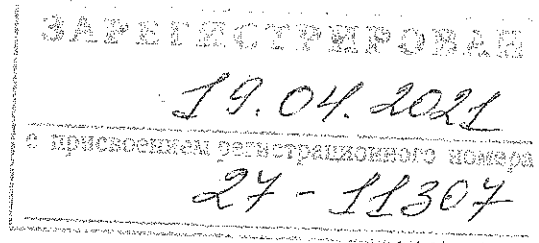 ЗАРЕГИСТРИРОВАН
19.04.2021
с присвоением регистрационного номера
27-11307